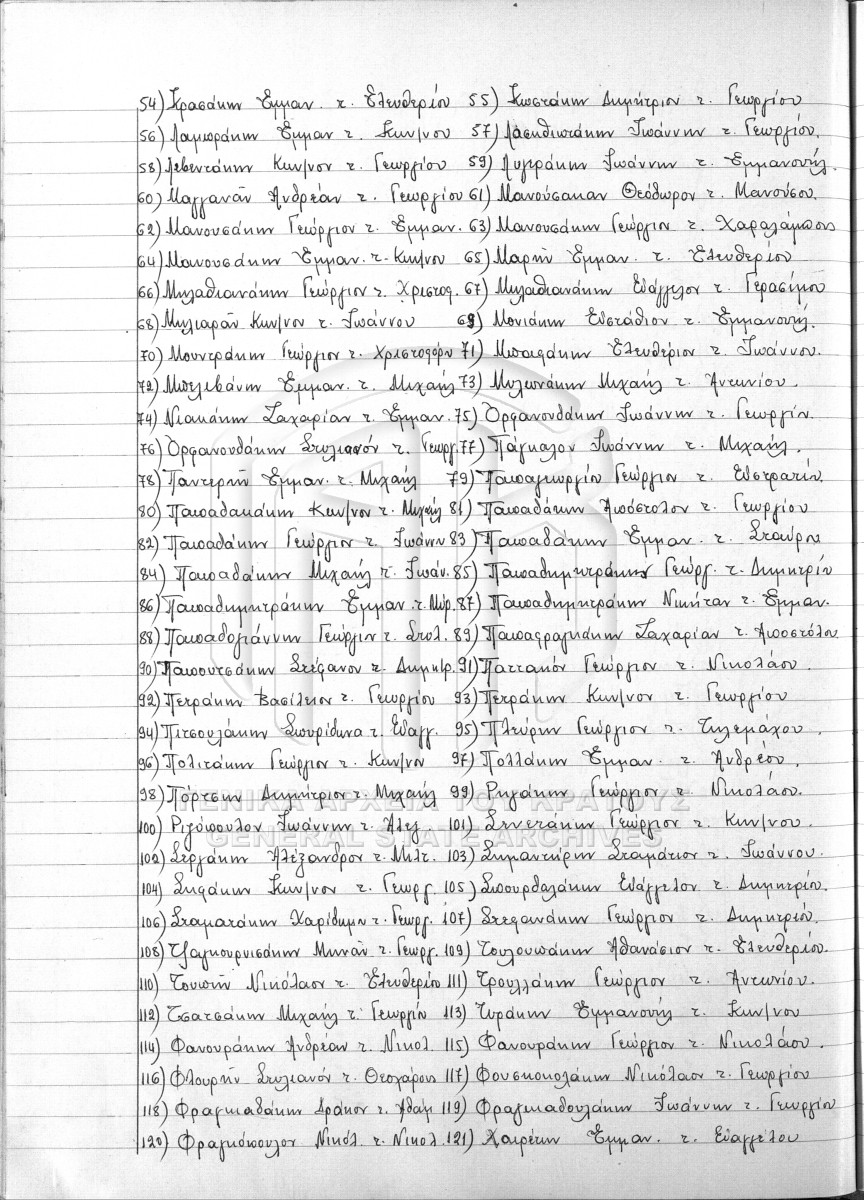 54) Κρασάκην Εμμαν. τ. Ελευθερίου 55) Κωστάκην Δημήτριον τ. Γεωργίου
56) Λαμπράκην Εμμαν τ. Κων/νου 57) Λασηθιωτάκην Ιωάννην τ. Γεωργίου.
58) Λεβεντάκην Κων/νον τ. Γεωργίου 59) Λυγεράκην Ιωάννην τ. Εμμανουήλ.
60) Μαγγανᾶν Ανδρέαν τ. Γεωργίου 61) Μανούσακαν Θεόδωρον τ. Μανούσου.
62) Μανουσάκην Γεώργιον τ. Εμμαν. 63) Μανουσάκην Γεώργιον τ. Χαραλάμπους
64) Μανουσάκην Εμμαν. τ. Κων/νου 65) Μαρῆν Εμμαν. τ. Ελευθερίου
66) Μηλαθιανάκην Γεώργιον τ. Χριστοφ. 67) Μηλαθιανάκην Εὐάγγελον τ. Γερασίμου
68) Μηλιαρᾶν Κων/νον τ. Ιωάννου 69) Μονιάκην Εὐστάθιον τ. Εμμανουήλ.
70) Μουντράκην Γεώργιον τ. Χριστοφόρου 71) Μπαιράκην Ελευθέριον τ. Ιωάννου.
72) Μπελιβάνην Εμμαν. τ. Μιχαήλ 73) Μυλωνάκην Μιχαήλ τ. Αντωνίου.
74) Νιακάκην Ζαχαρίαν τ. Εμμαν. 75) Ὀρφανουδάκην Ιωάννην τ. Γεωργίου.
76) Ὀρφανουδάκην Στυλιανόν τ. Γεωργ. 77) Πάγκαλον Ιωάννην τ. Μιχαήλ.
78) Παντερῆν Εμμαν. τ. Μιχαήλ 79) Παπαγεωργίου Γεώργιον τ. Εὐστρατίου.
80) Παπαδακάκην Κων/νον τ. Μιχαήλ 81) Παπαδάκην Απόστολον τ. Γεωργίου
82) Παπαδάκην Γεώργιον τ. Ιωάννου 83) Παπαδάκην Εμμαν. τ. Σταύρου
84) Παπαδάκην Μιχαήλ τ. Ιωάν. 85) Παπαδημητράκην Γεώργ. τ. Δημητρίου
86) Παπαδημητράκην Εμμαν. τ. Μύρ. 87) Παπαδημητράκην Νικήταν τ. Εμμαν.
88) Παπαδογιάννην Γεώργιον τ. Σπυλ. 89) Παπαφραγκάκην Ζαχαρίαν τ. Αποστόλου
90) Παπουτσάκην Στέφανον τ. Δημητρ. 91) Παττακόν Γεώργιον τ. Νικολάου.
92) Πετράκην Βασίλειον τ. Γεωργίου 93) Πετράκην Κων/νον τ. Γεωργίου
94) Πιτσουλάκην Σπυρίδωνα τ. Εὐαγγ. 95) Πλεύρην Γεώργιον τ. Τηλεμάχου.
96) Πολιτάκην Γεώργιον τ. Κων/νου 97) Πολλάκην Εμμαν. τ. Ανδρέου.
98) Πόρτσην Δημήτριον τ. Μιχαήλ 99) Ρηγάκην Γεώργιον τ. Νικολάου.
100) Ριζόπουλον Ιωάννην τ. Αλεξ. 101) Σενετάκην Γεώργιον τ. Κων/νου
102) Σεργάκην Αλέξανδρον τ. Μιλτ. 103) Σημαντήρην Σταμάτιον τ. Ιωάννου.
104) Σηφάκην Κων/νον τ. Γεωργ. 105) Σπουρδαλάκην Εὐάγγελον τ. Δημητρίου.
106) Σταματάκην Χαρίδημον τ. Γεωργ. 107) Στεφανάκην Γεώργιον τ. Δημητρίου.
108) Τζαγκουρνισάκην Μηνᾶν τ. Γεωργ. 109) Τουλουπάκην Αθανάσιον τ. Ελευθερίου.
110) Τουπῆν Νικόλαον τ. Ελευθερίου 111) Τρουλλάκην Γεώργιον τ. Αντωνίου.
112) Τσατσάκην Μιχαήλ τ. Γεωργίου 113) Τυράκην Εμμανουήλ τ. Κων/νου
114) Φανουράκην Ανδρέαν τ. Νικολ. 115) Φανουράκην Γεώργιον τ. Νικολάου.
116) Φλουρῆν Στυλιανόν τ. Θεοχάρους 117) Φουσκοπολάκην Νικόλαον τ. Γεωργίου
118) Φραγκιαδάκην Δράκον τ. Αδάμ 119) Φραγκιαδουλάκην Ιωάννην τ. Γεωργίου
120) Φραγκόπουλον Νικόλ. τ. Νικολ. 121) Χαιρέτην Εμμαν. τ. Εὐαγγέλου
ΓΕΝΙΚΑ ΑΡΧΕΙΑ ΤΟΥ ΚΡΑΤΟΥΣ
GENERAL STATE ARCHIVES